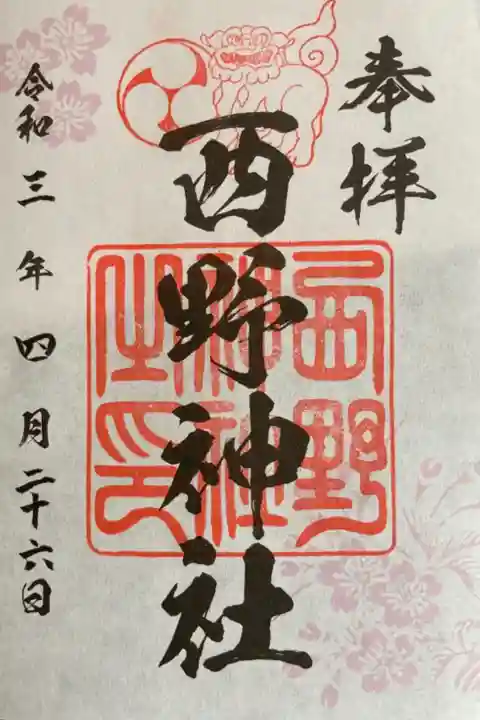 奉拝
西野神社
西野神社之印
令和三年四月二十六日